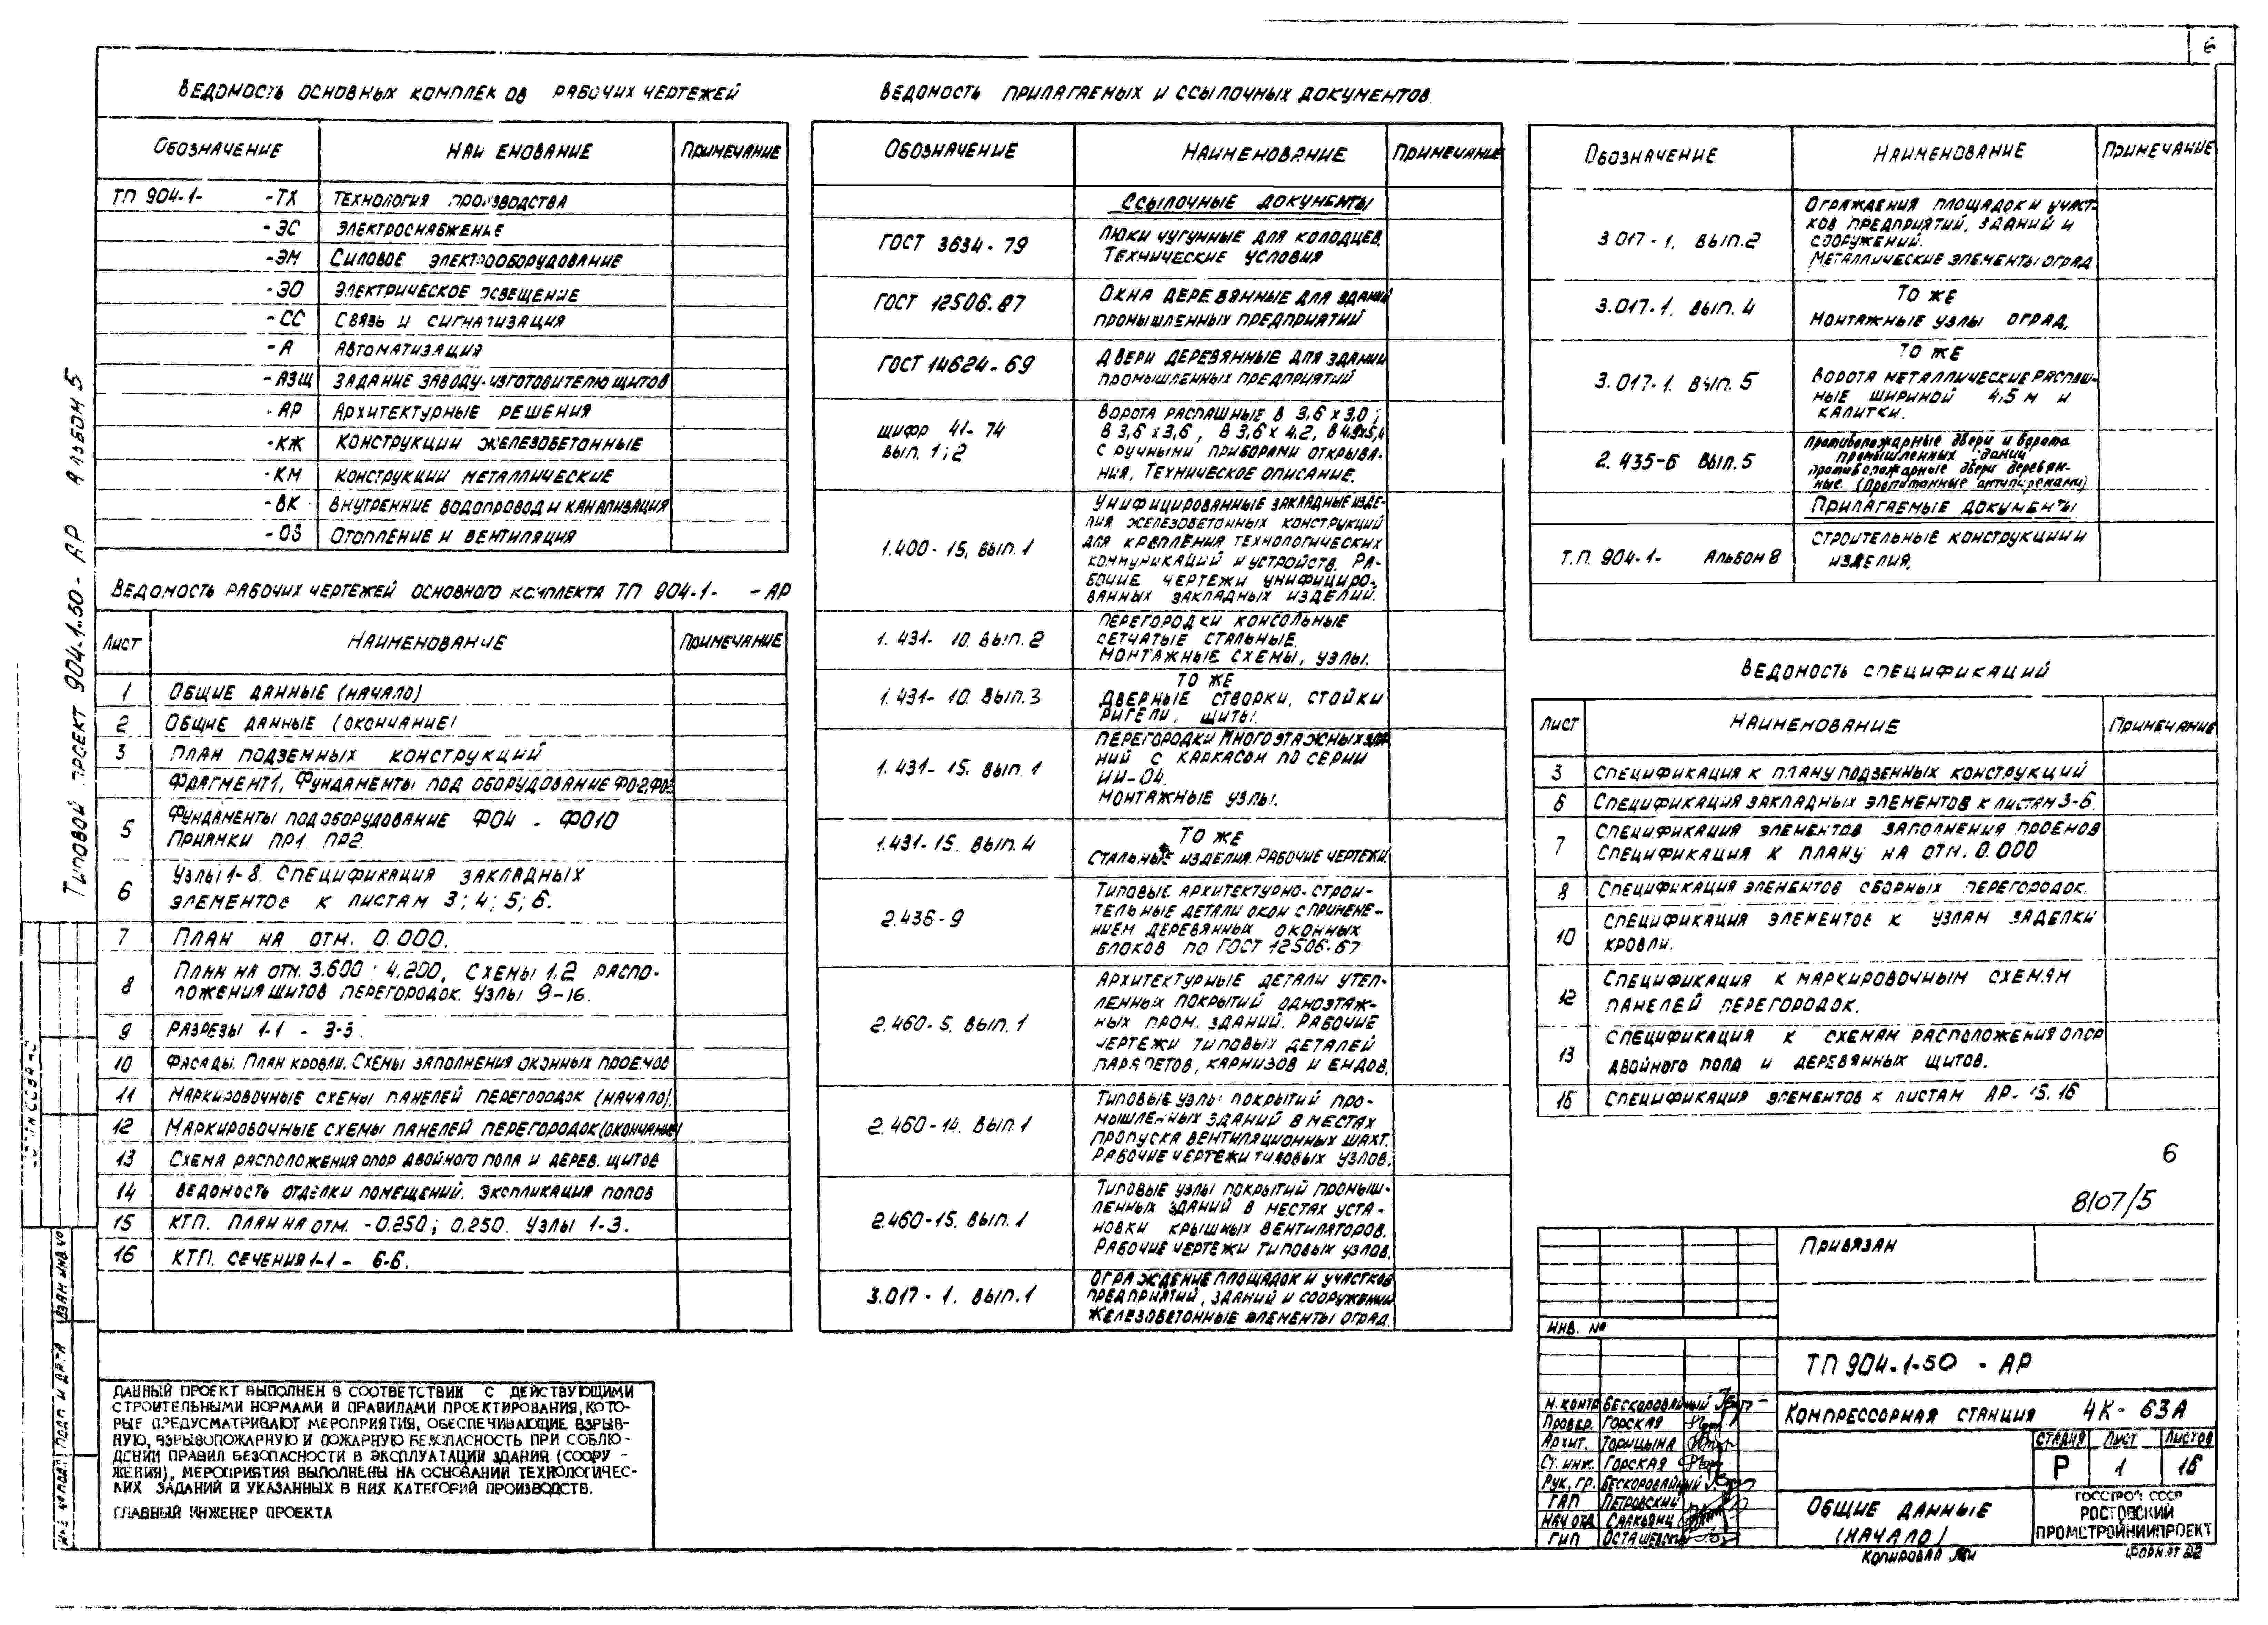 6
Ведомость основных комплек ов рабочих чертежей
Обозначение Наи енование Примечание
ТП 904-1- -ТХ Технология производства
-ЭС Электроснабжение
-ЭМ Силовое электрооборудование
-ЭО Электрическое освещение
-СС Связь и сигнализация
-А Автоматизация
-АЗЩ Задание заводу-изготовителю щитов
-АР Архитектурные решения
-КЖ Конструкции железобетонные
-КМ Конструкции металлические
-ВК Внутренние водопровод и канализация
-ОВ Отопление и вентиляция
Ведомость рабочих чертежей основного комплекта ТП 904-1- -АР
Лист Наименование Примечание
1 Общие данные (начало)
2 Общие данные (окончание)
3 План подземных конструкций
Фрагмент 1, Фундаменты под оборудование ФО2, ФО3
5 Фундаменты под оборудование ФО4 - ФО10
Приямки ПР1 ПР2.
6 Узлы 1-8. Спецификация закладных
элементов к листам 3; 4; 5; 6.
7 План на отм. 0.000.
8 План на отм. 3.600; 4.200, Схемы 1.2 распо-
ложения щитов перегородок. Узлы 9-16.
9 Разрезы 1-1 - 3-3.
10 Фасады. План кровли. Схемы заполнения оконных проемов
11 Маркировочные схемы панелей перегородок (начало).
12 Маркировочные схемы панелей перегородок (окончание)
13 Схема расположения опор двойного пола и дерев. щитов
14 Ведомость отделки помещений. Экспликация полов
15 КТП. План на отм. -0.250; 0.250. Узлы 1-3.
16 КТП. Сечения 1-1 - 6-6.
Данный проект выполнен в соответствии с действующими
строительными нормами и правилами проектирования, кото-
рые предусматривают мероприятия, обеспечивающие взрыв-
ную, взрывопожарную и пожарную безопасность при соблю-
дении правил безопасности в эксплуатации здания (соору-
жения), мероприятия выполнены на основании технологичес-
ких заданий и указанных в них категорий производств.
Главный инженер проекта
Ведомость прилагаемых и ссылочных документов.
Обозначение Наименование Примечание
Ссылочные документы
ГОСТ 3634-79 Люки чугунные для колодцев.
Технические условия
ГОСТ 12506.87 Окна деревянные для здании
промышленных предприятий
ГОСТ 14624-69 Двери деревянные для здании
промышленных предприятий
шифр 41-74
вып. 1; 2
Ворота распашные в 3,6 х 3,0;
в 3,6 х 3,6, в 3,6 х 4,2, в 4,9х5,4
с ручными приборами открыва-
ния. Техническое описание.
1.400-15, вып. 1
Унифицированные закладные изде-
лия железобетонных конструкций
для крепления технологических
коммуникаций и устройств. Ра-
бочие чертежи унифициро-
ванных закладных изделий.
1.431-10. вып. 2
Перегородки консольные
сетчатые стальные.
Монтажные схемы, узлы.
1.431-10. вып. 3
То же
Дверные створки, стойки
ригели, щиты.
1.431-15. вып. 1
Перегородки многоэтажных зда-
ний с каркасом по серии
ИИ-04.
Монтажные узлы.
1.431-15. вып. 4
То же
Стальные изделия. Рабочие чертежи
2.436-9
Типовые архитектурно-строи-
тельные детали окон с примене-
нием деревянных оконных
блоков по ГОСТ 12506-67
2.460-5. вып. 1
Архитектурные детали утеп-
ленных покрытий одноэтаж-
ных пром. зданий. Рабочие
чертежи типовых деталей
парапетов, карнизов и ендов.
2.460-14. вып. 1
Типовые узлы покрытий про-
мышленных зданий в местах
пропуска вентиляционных шахт.
Рабочие чертежи типовых узлов.
2.460-15. вып. 1
Типовые узлы покрытий промыш-
ленных зданий в местах уста-
новки крышных вентиляторов.
Рабочие чертежи типовых узлов.
3.017-1. вып. 1
Ограждение площадок и участков
предприятий, зданий и сооружений
Железобетонные элементы оград.
Обозначение Наименование Примечание
3.017-1. вып. 2
Ограждения площадок и участ-
ков предприятий, зданий и
сооружений.
Металлические элементы оград
3.017-1. вып. 4
То же
Монтажные узлы оград.
3.017-1. вып. 5
То же
Ворота металлические распаш-
ные шириной 4,5 м и
калитки.
2.435-6 вып. 5
Противопожарные двери и ворота
промышленных зданий
противопожарные двери деревян-
ные. (Пропитанные антипиренами)
Прилагаемые документы
Т.П. 904-1- Альбом 8
Строительные конструкции и
изделия.
Ведомость спецификаций
Лист Наименование Примечание
3 Спецификация к плану подземных конструкций
6 Спецификация закладных элементов к листам 3-6.
7 Спецификация элементов заполнения проемов
Спецификация к плану на отм. 0.000
8 Спецификация элементов сборных перегородок.
10 Спецификация элементов к узлам заделки
кровли.
12 Спецификация к маркировочным схемам
панелей перегородок.
13 Спецификация к схемам расположения опор
двойного пола и деревянных щитов.
16 Спецификация элементов к листам АР-15,16
6
8107/5
Привязан
Инв. №
ТП 904.1-50 - АР
Компрессорная станция 4К-63А
Н.контр Бескоровайный
Провер. Горская
Архит. Торицына
Ст. инж. Горская
Рук. гр. Бескоровайный
ГАП Петровский
Нач отд Саакьянц
ГИП
Стадия Лист Листов
Р 1 16
Общие данные
(начало)
Госстрой СССР
Ростовский
Промстройниипроект
Копировал
Формат 22
Типовой проект 904-1-50-АР Альбом 5
Взам инв. №
Подп и дата
Инв № подл